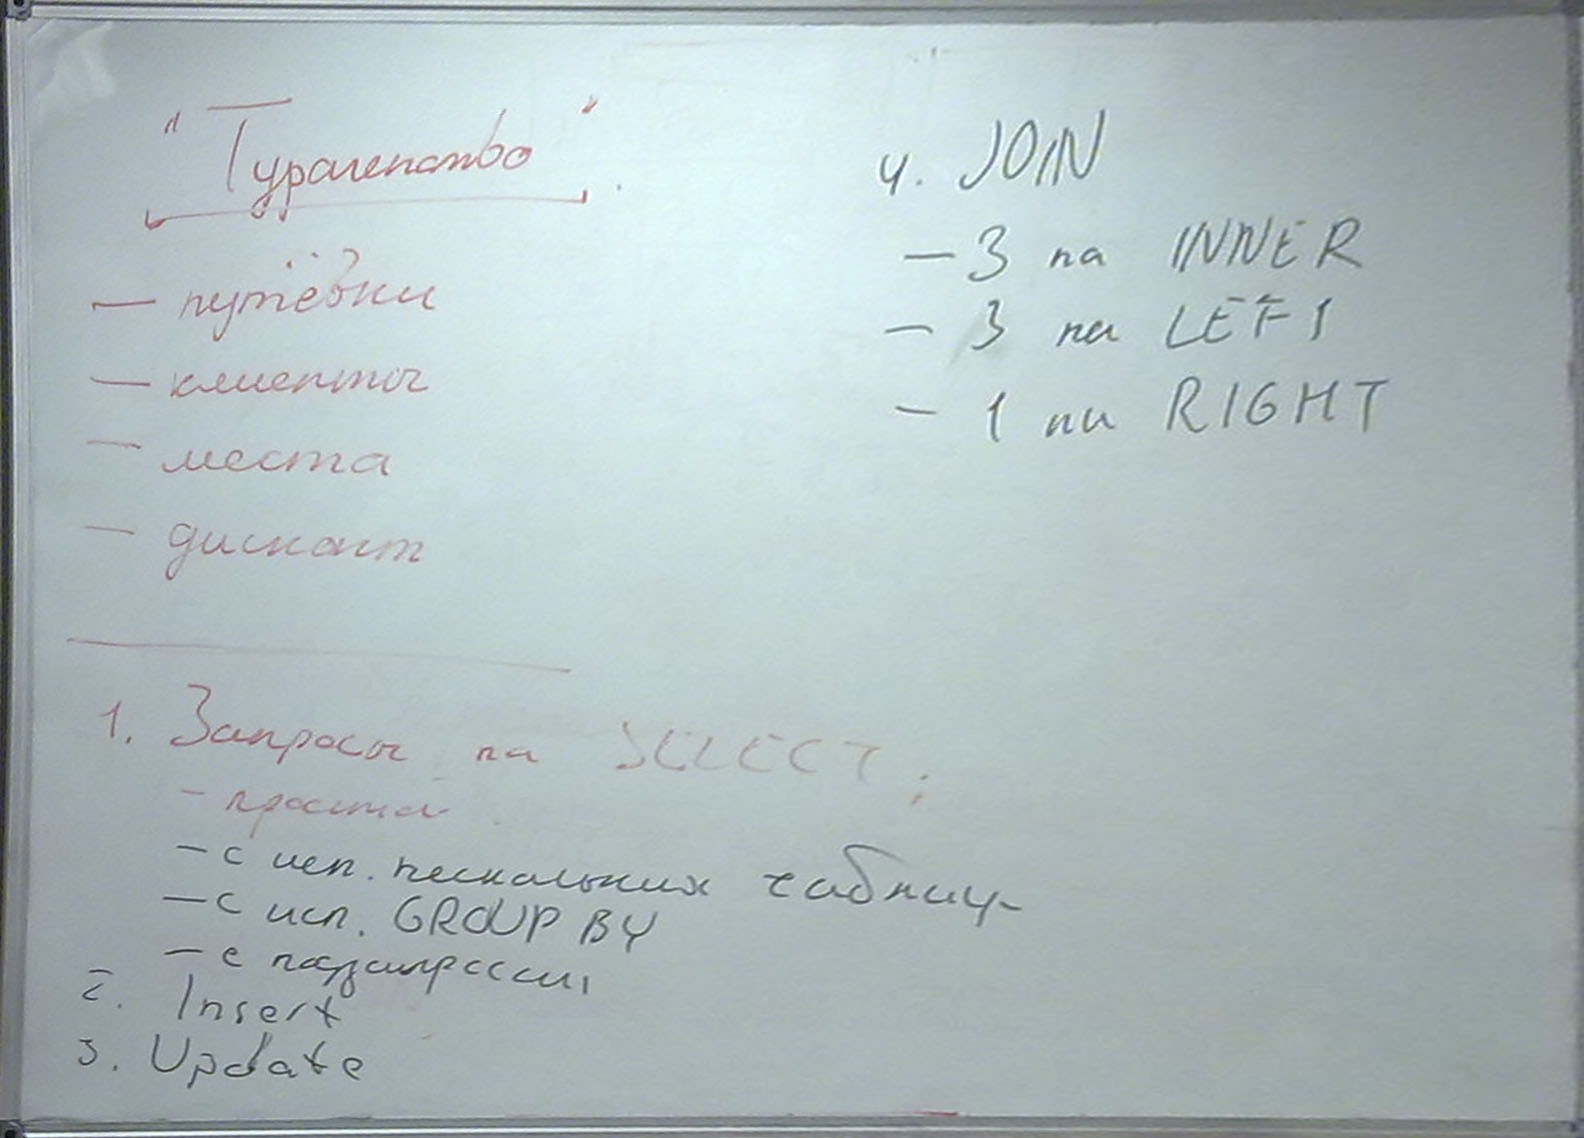 "Турагенство"
— путёвки
— клиенты
— места
— дисконт
1. Запросы на SELECT:
- простые
- с исп. нескольких таблиц
- с исп. GROUP BY
- с подзапросом
2. Insert
3. Update
4. JOIN
- 3 на INNER
- 3 на LEFT
- 1 на RIGHT